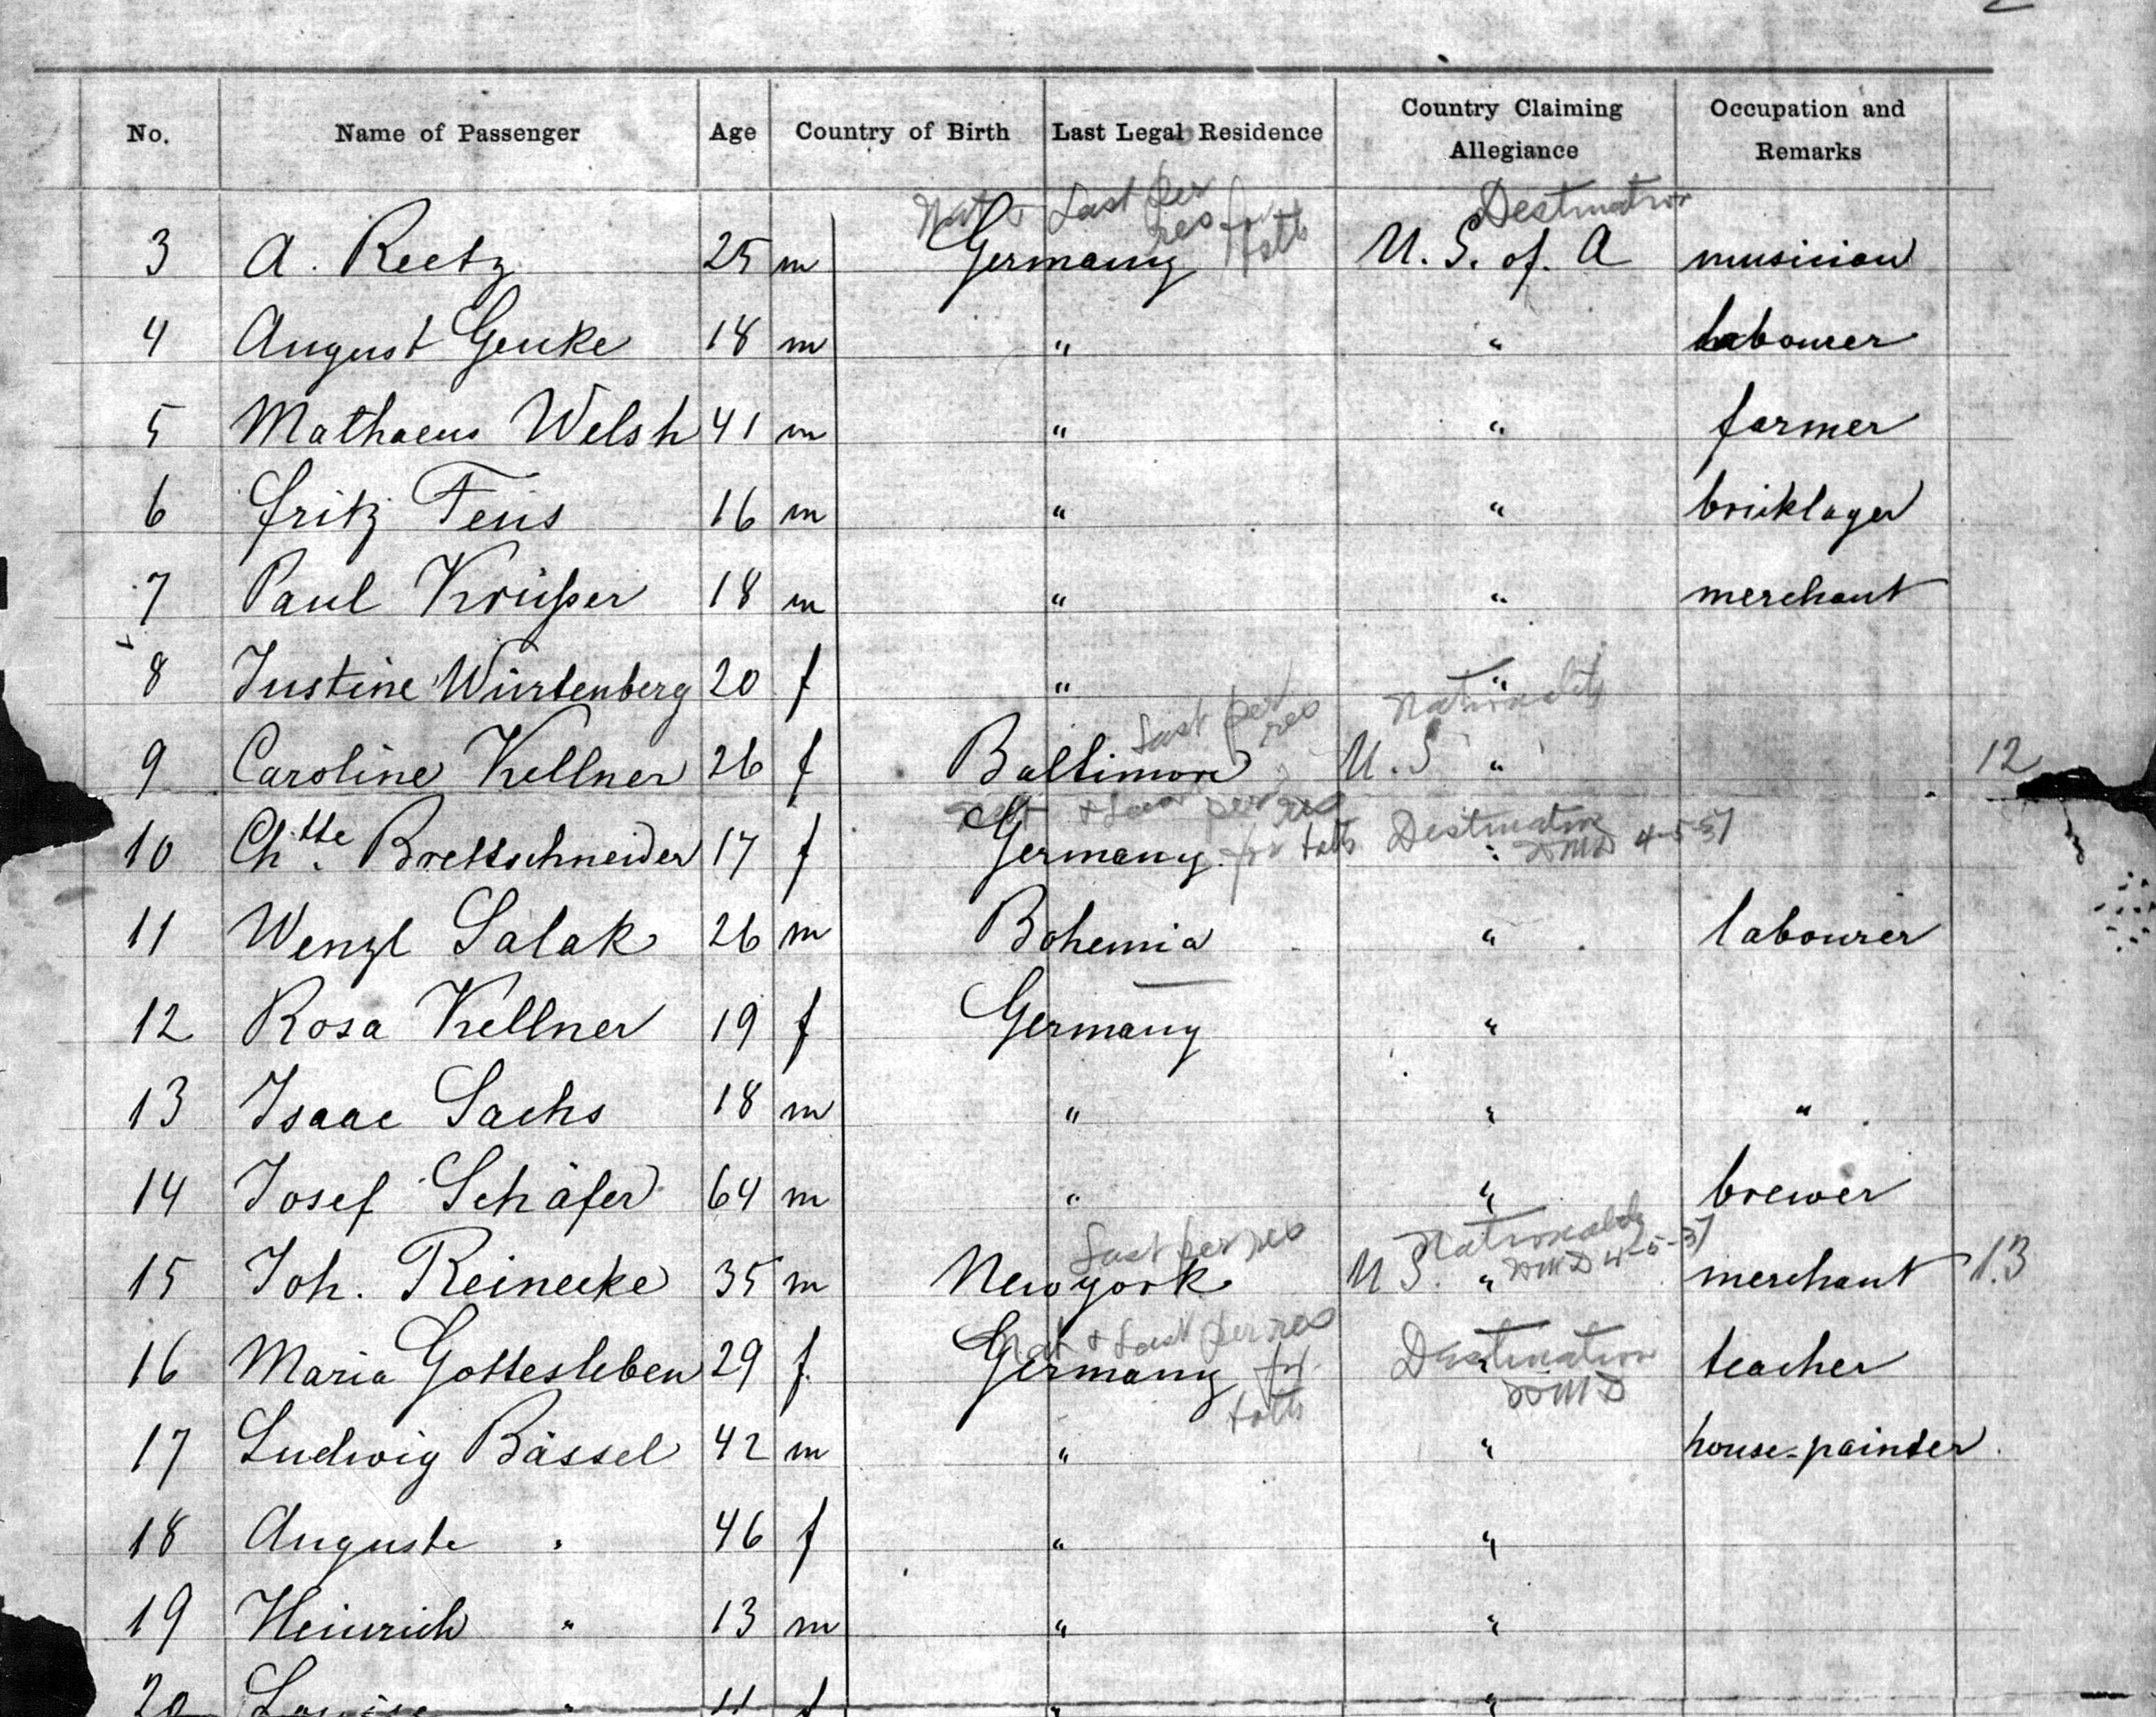 No. Name of Passenger Age Country of Birth Last Legal Residence Country Claiming Allegiance Occupation and Remarks
Nat + Last per res for 7 Destination
3 A. Reetz 25 m Germany U. S. of. A musician
4 August Genke 18 m " " labourer
5 Mathaeus Welsh 41 m " " farmer
6 Fritz Feis 16 m " " bricklayer
7 Paul Krüßer 18 m " " merchant
8 Justine Würtenberg 20 f " "
Last per res Nationality
9 Caroline Kellner 26 f Baltimore U. S " 12
Nat + Last per res for Destination 4-5-37
10 Chtte. Brettschneider 17 f Germany. "
11 Wenzl Salak 26 m Bohemia " labourer
12 Rosa Kellner 19 f Germany "
13 Isaac Sachs 18 m " " "
14 Josef Schäfer 64 m " " brewer
Last per res Nationality 4-5-37
15 Joh. Reinecke 35 m Newyork U S. " merchant 13
Nat + Last per res for Destination
16 Maria Gottesleben 29 f. Germany " teacher
17 Ludwig Bässel 42 m " " house-painter
18 Auguste " 46 f " "
19 Heinrich " 13 m " "
20 Louise " 11 f " "